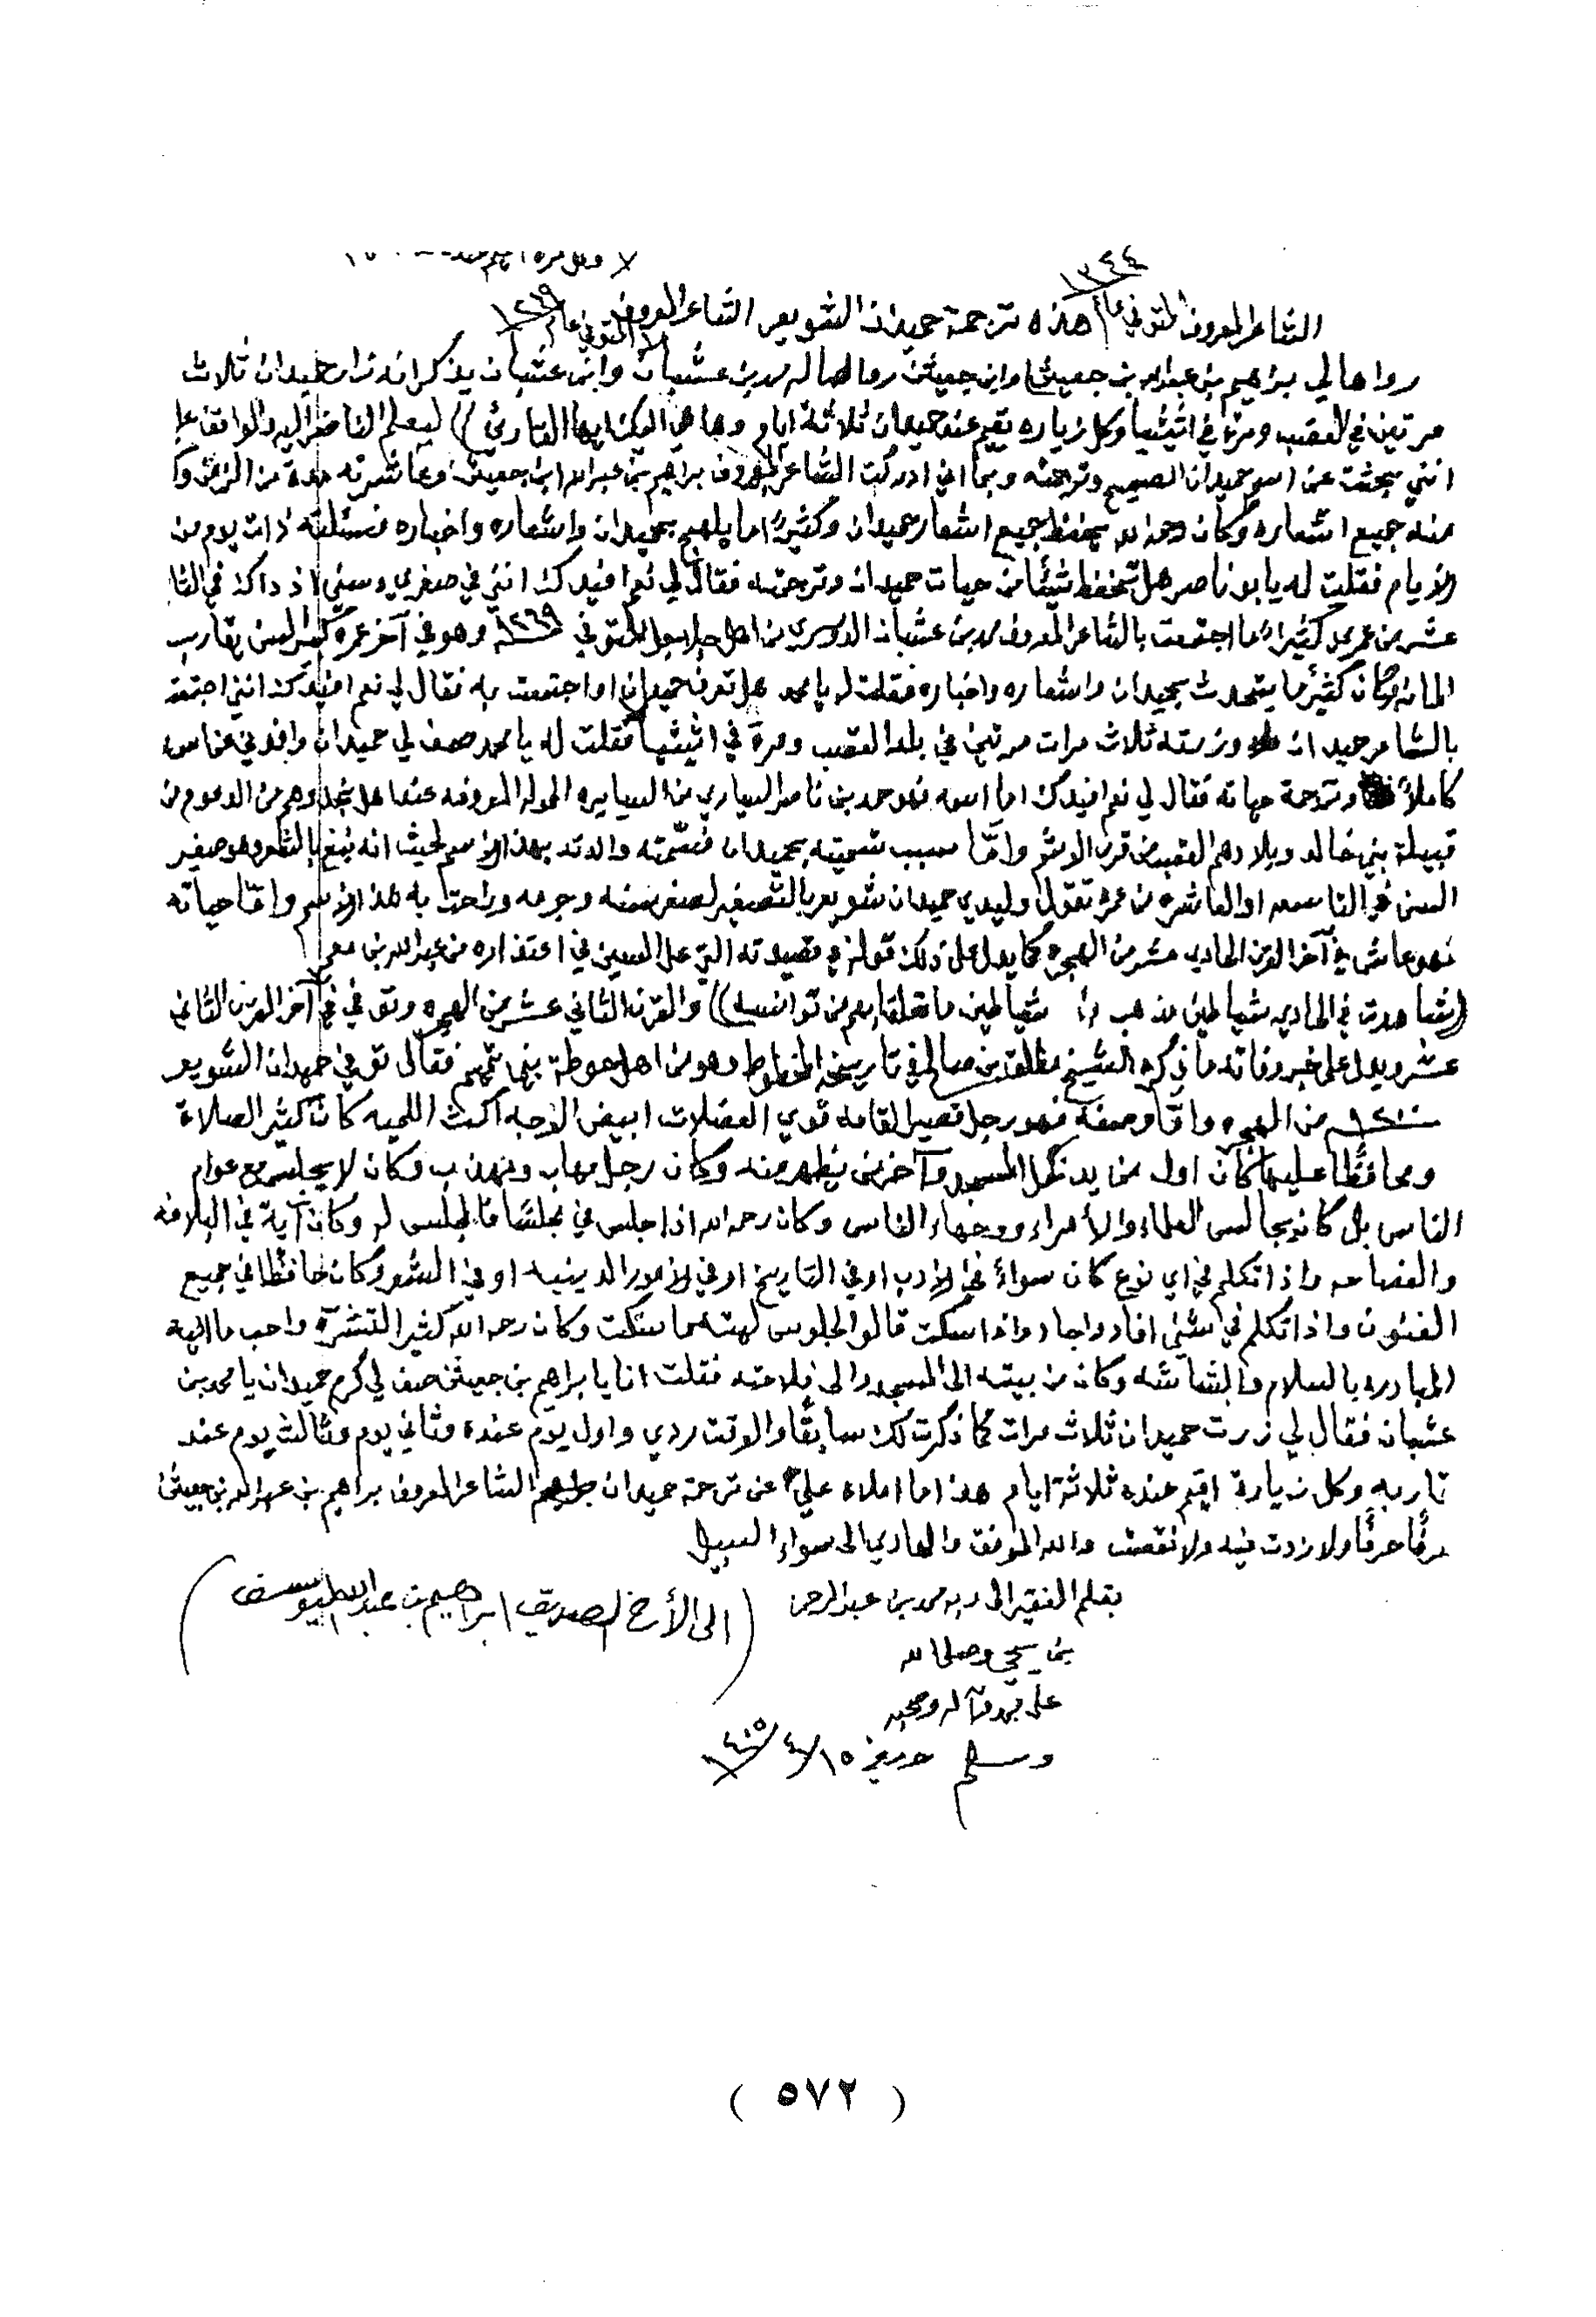 ١٣٤٤
الشاعر المعروف المتوفي عام هذه ترجمة حميدان الشويعر الشاعر المعروف
المتوفي عام ١٢٦٩
رواها لي براهيم بن عبدالله بن جعيثن وابن جعيثن رواها له محمد بن عشبان وابن عشبان يذكر انه زار حميدان ثلاث
مرتين في القصب ومرة في اثيثيا وكل زياره يقيم عند حميدان ثلاثة ايام وها هي اليك ايها القارئ )) ليعلم الناظر اليه والواقف
انني بحثت عن اسم حميدان الصحيح وترجمته وبما اني ادركت الشاعر المعروف براهيم بن عبدالله ابن جعيثن وعاشرته مدة من الزمن
منه جميع اشعاره وكان رحمه الله يحفظ جميع اشعار حميدان وكثيرًا ما يلهج بحميدان واشعاره واخباره فسئلته ذات يوم من
الأيام فقلت له يا بو ناصر هل تحفظ شيئًا من حيات حميدان وترجمته فقال لي نعم افيدك انني في صغري وسني اذ ذاك في الثا
عشر من عمري كثيرًا ما اجتمعت بالشاعر المعروف محمد بن عشبان الدوسري من اهل جلاجل المتوفي ١٢٦٩ وهو في آخر عمره كبير السن يقارب
المائه وكان كثيرًما يتحدث بحميدان واشعاره واخباره فقلت له يا محمد هل تعرف حميدان او اجتمعت به فقال لي نعم افيدك انني اجتمعت
بالشاعر حميدان وزرته ثلاث مرات مرتين في بلد القصب ومرة في اثيثيا فقلت له يا محمد صف لي حميدان وافدني عن اسمه
كاملاً وترجمة حياته فقال لي نعم افيدك اما اسمه فهو حمد بن ناصر السياري من السيايره الحموله المعروفه عند اهل نجد وهم من الدعوم من
قبيلة بني خالد وبلادهم القصب من قرى الوشم وامَّا سبب تسميته بحميدان فسمّته والدته بهذا الاسم لحيث انه نبغ بالشعر وهو صغير
السن في التاسعه او العاشره من عمره تقول وليدي حميدان شويعر بالتصغير لصغر سنه وجرمه وراحتا به هذا الاسم وامّا حياته
فهو عاش في آخر القرن الحادي عشر من الهجره كما يدل على ذلك قوله في قصيدته التي على السين في اعتذاره من عبدالله بن معمر
والقرن الثاني عشر من الهجره وتوفي في آخر القرن الثاني
عشر ويدل على خبر وفاته ما ذكره الشيخ مطلق بن صالح في تاريخه المخطوط وهو من اهل حوطة بني تميم فقال توفي حميدان الشويعر
من الهجره وامّا وصفه فهو رجل قصير القامه قوي العضلات ابيض الوجه اكث اللحيه كان كثير الصلاة
ومحافظًا عليها كان اول من يدخل المسجد وآخر من يظهر منه وكان رجل مهاب ومهذب وكان لا يجلس مع عوام
الناس بل كان يجالس العلماء والأمراء ووجهاء الناس وكان رحمه الله اذا جلس في مجلس ما لجلس له وكان آية في البلاغه
والفصاحه واذا تكلم في اي نوع كان سواءً في الأدب او في التاريخ او في الأمور الدينيه او في الشعر وكان حافظا في جميع
الفنون واذا تكلم في شئي افاد واجاد واذا سكت قالو الجلوس ليته ما سكت وكان رحمه الله كثير التشره واحب ما اليه
المبادره بالسلام والبشاشه وكان من بيته الى المسجد والى فلاحته فقلت انا يا براهيم بن جعيثن صف لي كرم حميدان يا محمد بن
عشبان فقال لي زرت حميدان ثلاث مرات كما ذكرت لك سابقًا والوقت ردي واول يوم عنده وثاني يوم وثالث يوم عند
وكل زيارة اقيم عنده ثلاثة ايام هذا ما املاه عليّ عن ترجمة حميدان الشاعر المعروف براهيم بن عبدالله بن جعيثن
حرفًا حرفًا ولا زدت فيه ولا نقصت والله الموفق والهادي الى سواء السبيل
بقلم الفقير الى ربه محمد بن عبدالرحمن
(الى الأخ الصديق ابراهيم بن عبدالله اليوسف)
بن يحيى وصلى الله
على محمد وآله وصحبه
وسلم حرر في ١٥/٤/١٤٠٥
( ٥٧٢ )